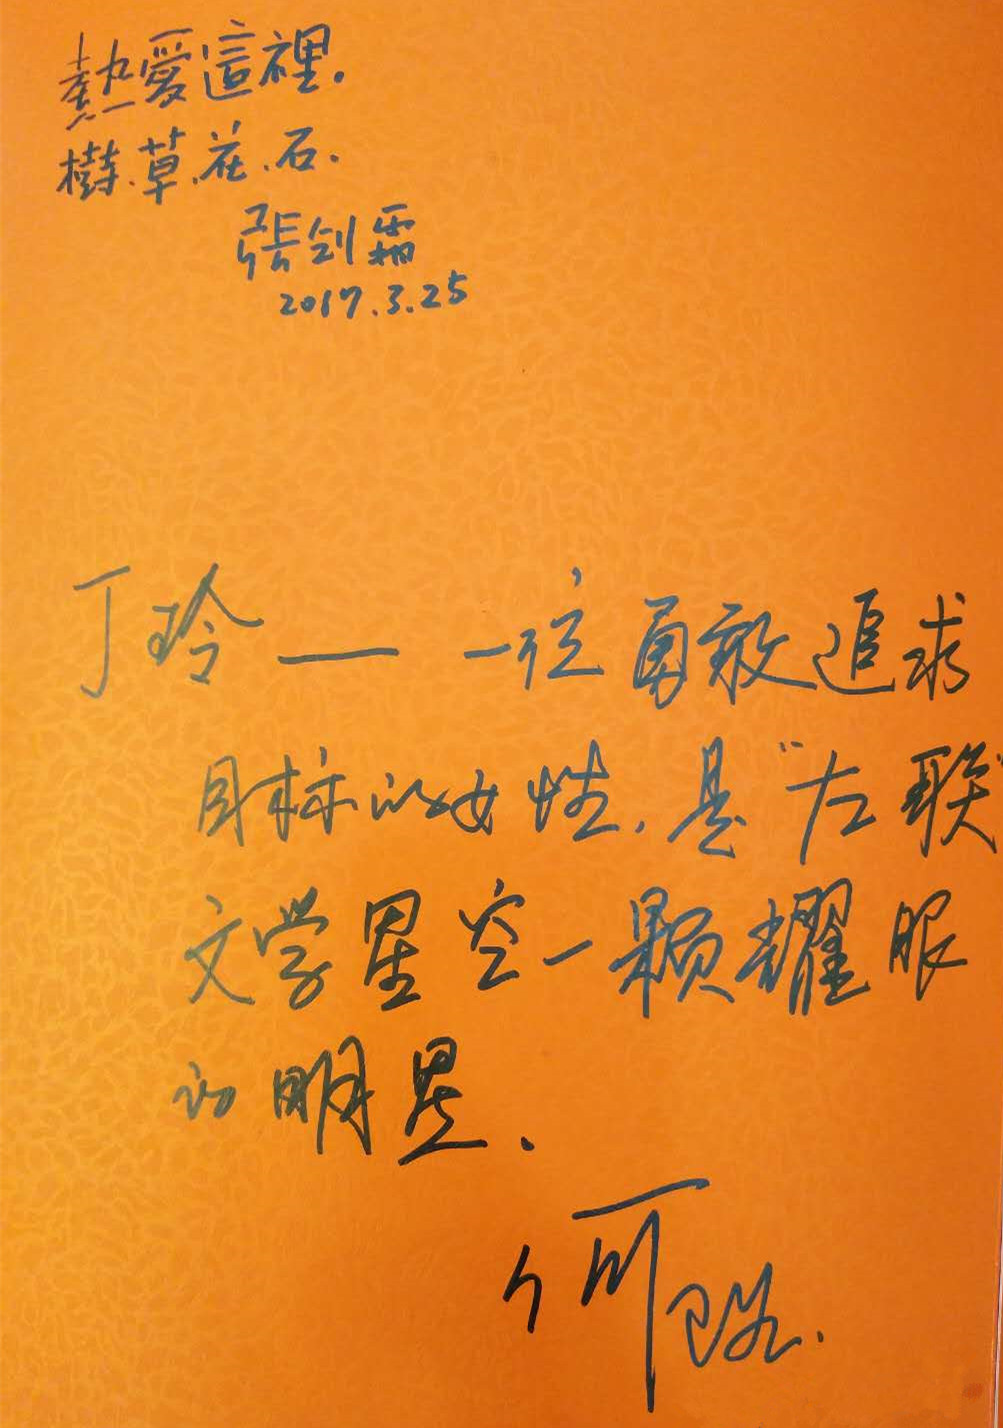 熱愛這裡.
樹.草.花.石.
張劍霜
2017.3.25
丁玲——一位勇敢追求
目标的女性.是"左联"
文学星空一颗耀眼
的明星.
何